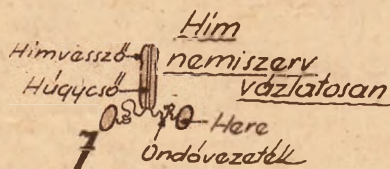 Hím
nemiszerv
vázlatosan
Hímvessző
Húgycső
Here
Ondóvezeték
7